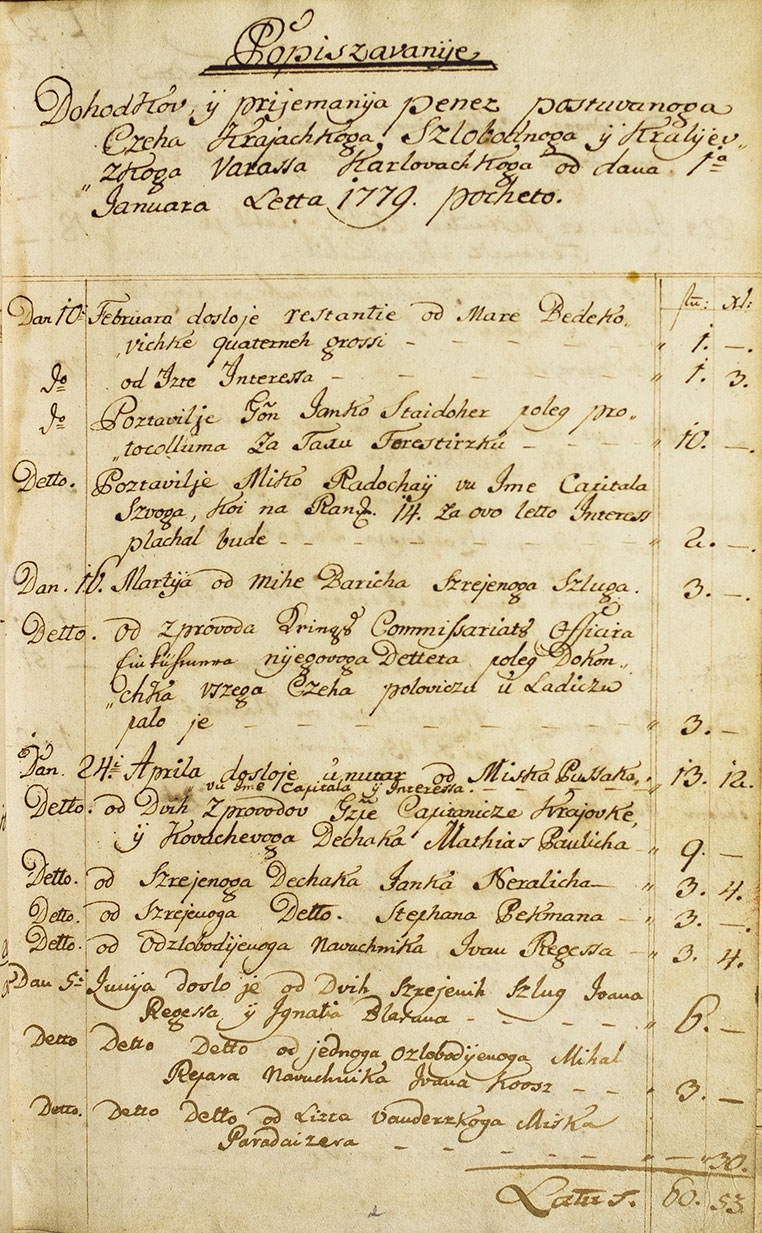 Popiszavanije
Dohodkov, ÿ prijemanija penez postuvanoga
Czeha Krajachkoga, Szlobodnoga ÿ Kralijev„
„zkoga Varassa Karlovachkoga od dana 1ᵃ
Januara Letta 1779. pocheto.
flu: xl:
Dan 10ⁱ Februara dosloje restantie od Mare Bedeko„
„vichke quaterneh grossi - - - - - „ 1. —.
dº od Izte Interessa - - - - - - „ 1. 3.
dº Poztavilje Gōn Janko Staidoher poleg pro„
„tocolluma Za Taxu Forestirzku - - - - „ 10. —.
Detto. Poztavilje Miko Radochaÿ vu Ime Capitala
Szvoga, koi na 14. Za ovo letto Interess
plachal bude - - - - - - - „ 2. —.
Dan. 16. Martÿa od Mihe Baricha Szrejenoga Szluga. 3. —.
Detto. od Zprovoda Commissariats Officira
nijegovoga Detteta poleg Dokon„
„chka vszega Czeha poloviczu u Ladiczu
palo je - - - - - - - - „ 3. —
Dan. 24ⁱ Aprila dosloje unutar od Miska Pussaka, „ 13. 12.
vu Ime Capitala ÿ Interessa. - - - -
Detto. od Dvih Zprovodov Gz̄je Capitanicze Krajovke,
ÿ Kovachevoga Dechaka Mathias Paulicha - „ 9. —
Detto. od Szrejenoga Dechaka Janka Neralicha — „ 3. 4.
Detto. od Szrejenoga Detto. Stephana Pekmana - „ 3. —.
Detto. od Odzlobodijenoga Navuchnika Ivan Regessa - „ 3. 4.
Dan 5ⁱ Junija doslo je od Dvih Szrejenih Szlug Ivana
Regessa ÿ Ignatia Blasana - - - - - „ 6. —
Detto Detto Detto od jednoga Ozlobodijenoga Mihal
Repara Navuchnika Ivana Koosz - - „ 3. —
Detto. Detto Detto od Lizta Vanderzkoga Miska
Paradaizera - - - - - - - „ — „ 30.
Latus. 60. 53.